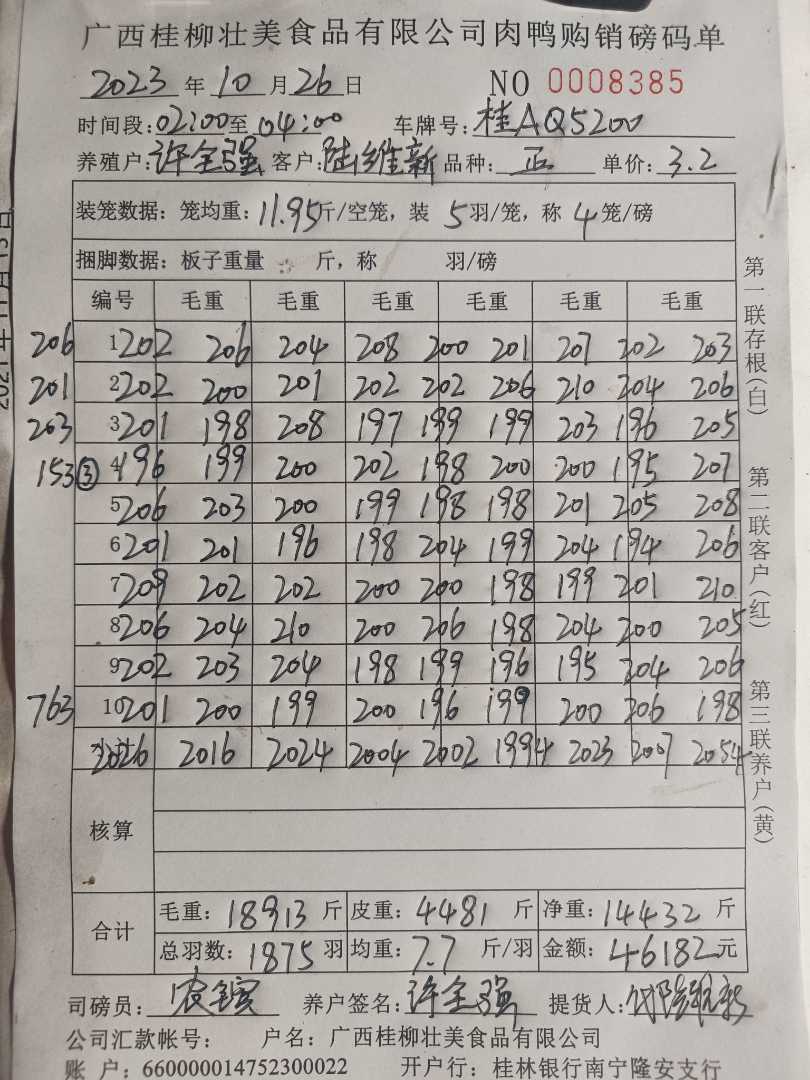 广西桂柳壮美食品有限公司肉鸭购销磅码单
2023 年 10 月 26 日 NO 0008385
时间段:02:00至 04:00 车牌号:桂AQ5200
养殖户:许全强 客户:陆维新 品种:正 单价:3.2
装笼数据:笼均重:11.95斤/空笼,装 5 羽/笼,称 4 笼/磅
捆脚数据:板子重量 斤,称 羽/磅
编号 毛重 毛重 毛重 毛重 毛重 毛重
206 1 202 206 204 208 200 201 207 202 203
201 2 202 200 201 202 202 206 210 204 206
203 3 201 198 208 197 199 199 203 196 205
153 ③ 4 196 199 200 202 198 200 200 195 207
5 206 203 200 199 198 198 201 205 208
6 201 201 196 198 204 199 204 194 206
7 209 202 202 200 200 198 199 201 210
8 206 204 210 200 206 198 204 200 205
9 202 203 204 198 199 196 195 204 206
763 10 201 200 199 200 196 199 200 206 198
小计 2026 2016 2024 2004 2002 1994 2023 2007 2054
核算
合计
毛重:18913 斤 皮重:4481 斤 净重:14432 斤
总羽数:1875 羽 均重:7.7 斤/羽 金额:46182元
司磅员: 养户签名:许全强 提货人:
公司汇款帐号: 户名:广西桂柳壮美食品有限公司
账 户:660000014752300022 开户行:桂林银行南宁隆安支行
第一联存根(白)
第二联客户(红)
第三联养户(黄)